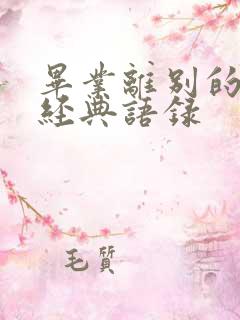 畢業離別的
經典語录
毛質